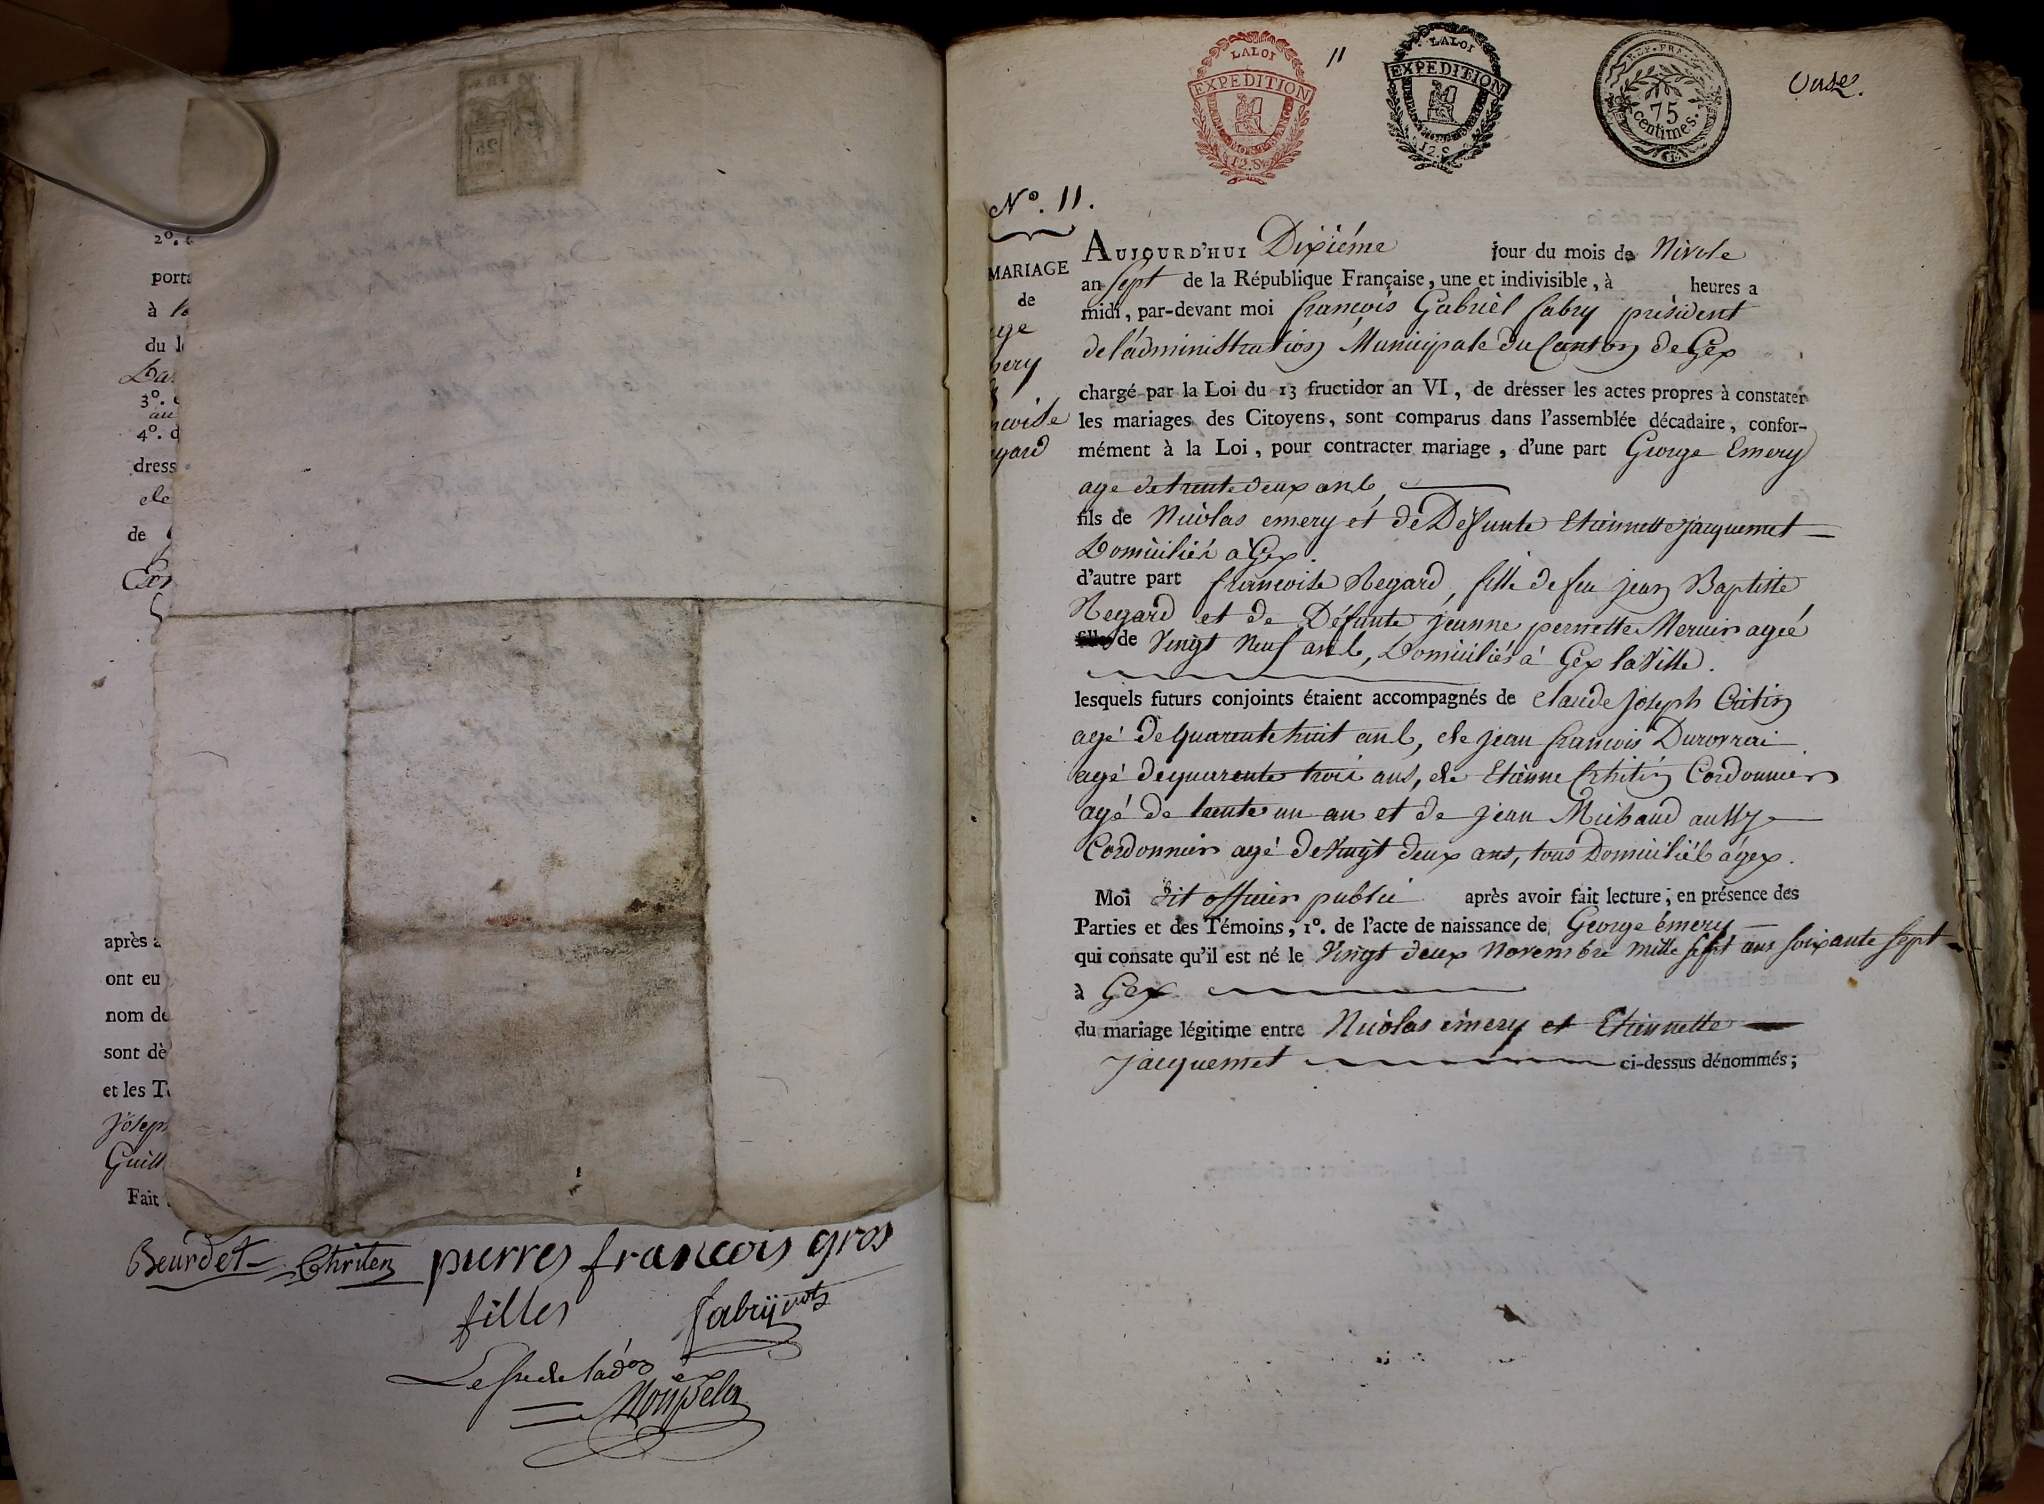 2º.
porta
à
du l
3º. e
au
4º. d
dress
ele
de
après a
ont eu
nom de
sont dè
et les Té
Joseph
Guill
Fait
Beurdet Chriten pierres francois gros
filles fabry
LALOI
EXPEDITION
12.S
11
LALOI
EXPEDITION
12.S
REP. FRA.
75
centimes.
Onze.
Nº. 11.
MARIAGE
de
rge
mery
&
ncoise
gard
AUJOURD'HUI Dixiéme jour du mois de Nivose
an Sept de la République Française, une et indivisible, à heures a
midi, par-devant moi françois Gabriel fabry président
de l'administration Municipale du Canton de Gex
chargé par la Loi du 13 fructidor an VI, de dresser les actes propres à constater
les mariages des Citoyens, sont comparus dans l'assemblée décadaire, confor-
mément à la Loi, pour contracter mariage, d'une part George Emery
age de trente deux ans,
fils de Nicolas emery et de Défunte Etiennette jacquemet
Domicilié à Gex.
d'autre part francoise Regard, fille de feu jean Baptiste
Regard et de Défunte jeanne pernette Mercier ageé
fille de Vingt Neuf ans, Domiciliés à Gex la Ville.
lesquels futurs conjoints étaient accompagnés de Claude Joseph
agé de quarente huit ans, de jean francois
agé de quarente trois ans, de Etienne Cordonnier
agé de trente un an et de jean Michaud aussy
Cordonnier agé de vingt deux ans, tous Domiciliés à gex.
Moi dit officier public après avoir fait lecture, en présence des
Parties et des Témoins, 1º. de l'acte de naissance de George émery
qui consate qu'il est né le Vingt deux Novembre mille sept cent soixante sept
à Gex
du mariage légitime entre Nicolas émery et Etiennette
Jacquemet ci-dessus dénommés;